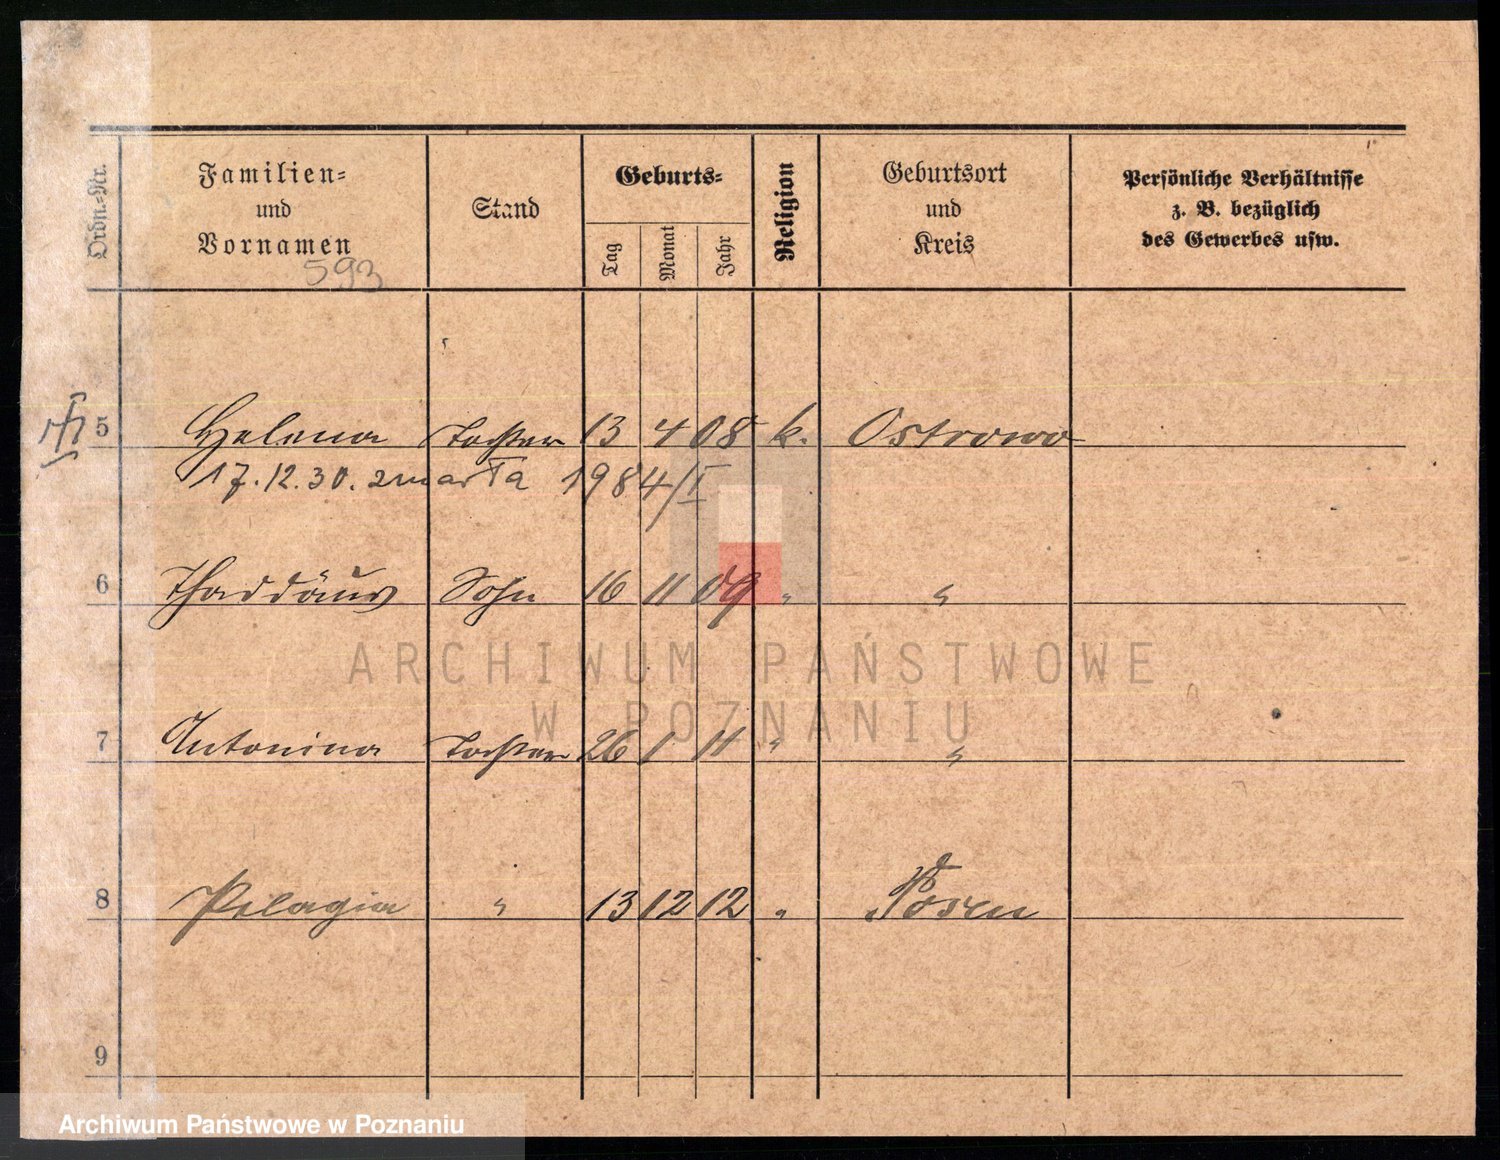 Ordn.-Nr.
Familien-
und
Vornamen
593
Stand
Geburts-
Tag
Monat
Jahr
Religion
Geburtsort
und
Kreis
Persönliche Verhältnisse
z. B. bezüglich
des Gewerbes usw.
5 Helena Tochter 13 4 08 k. Ostrowo
17.12.30. zmarła 1984/I
6 Thaddäus Sohn 16 11 09 " "
ARCHIWUM PAŃSTWOWE
W POZNANIU
7 Antonina Tochter 26 1 11 " "
8 Pelagia " 13 12 12 " Posen
9
Archiwum Państwowe w Poznaniu